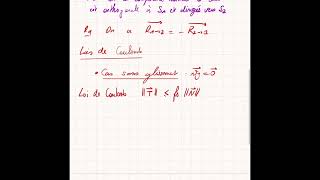 est orthogonale à S₁ et dirigée vers S₂
Rq On a R⃗₁→₂ = - R⃗₂→₁
Lois de Coulomb
• Cas sans glissement : v⃗g = 0⃗
Loi de Coulomb ||T⃗|| ≤ fs ||N⃗||